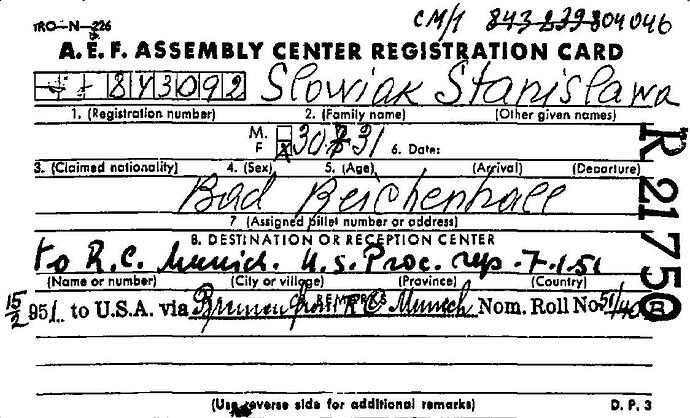 TRO—N—226
CM/1 843 239 804046
A.E.F. ASSEMBLY CENTER REGISTRATION CARD
843092 Slowiak Stanislawa
1. (Registration number) 2. (Family name) (Other given names)
M.
F x 30 31 6. Date:
3. (Claimed nationality) 4. (Sex) 5. (Age) (Arrival) (Departure)
Bad Reichenhall
7 (Assigned billet number or address)
8. DESTINATION OR RECEPTION CENTER
to R.C. Munich. U.S. Proc. rep. 7.1.51
(Name or number) (City or village) (Province) (Country)
REMARKS
15/2 951. to U.S.A. via Bremen from R C Munich Nom. Roll No 51/40
(Use reverse side for additional remarks) D. P. 3
R 21750 B